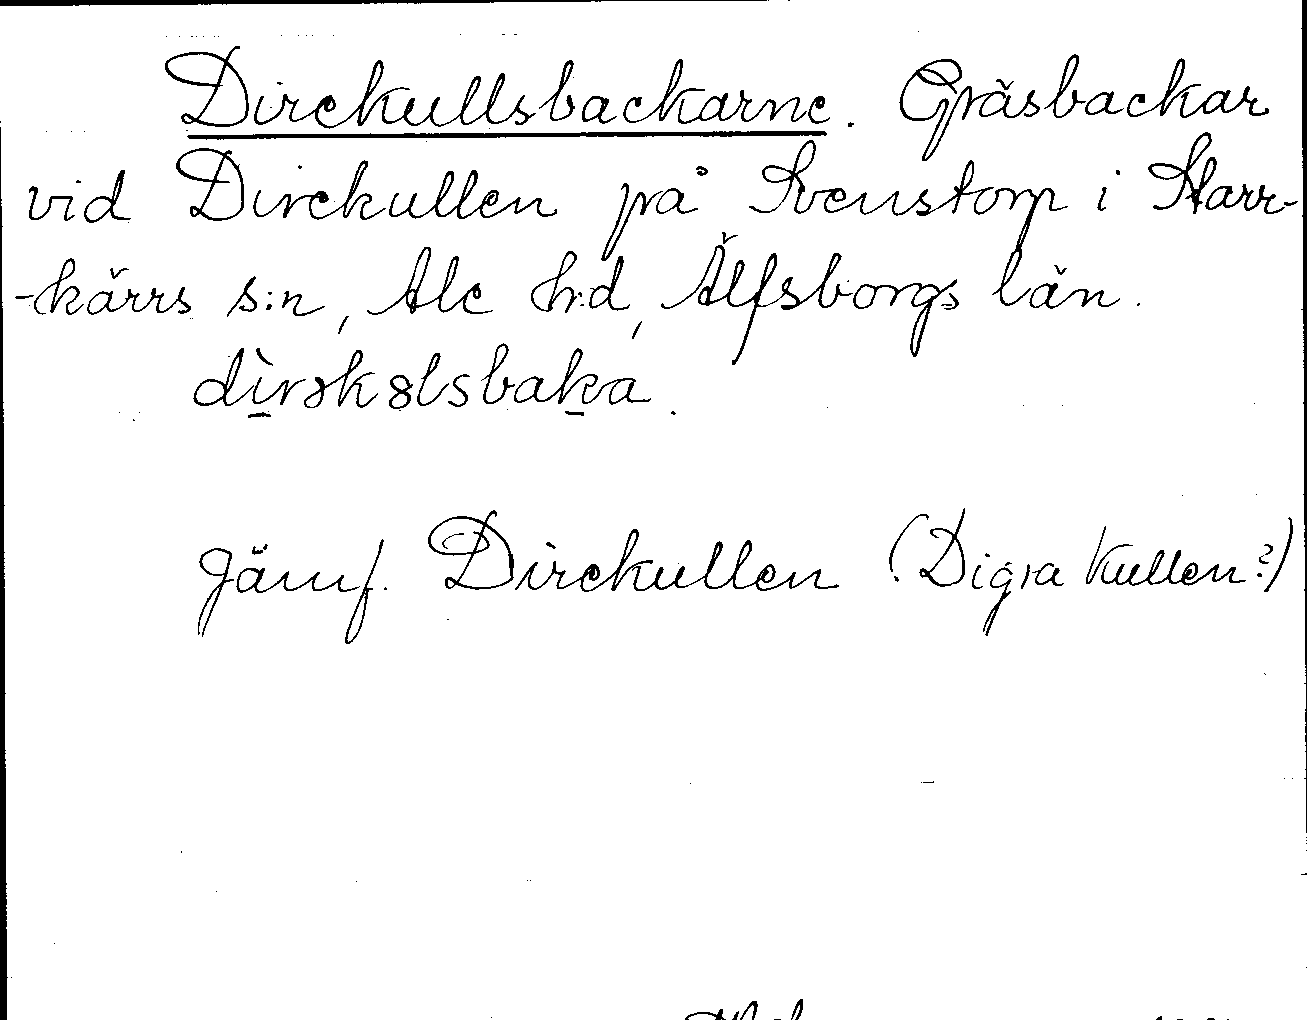 Direkullsbackarne. Gräsbackar
vid Direkullen på Svenstorp i Starr-
-kärrs s:n, Ale h:d, Älfsborgs län.
dìrəkɵlsbaka.
Jämf. Direkullen (Digra kullen?)